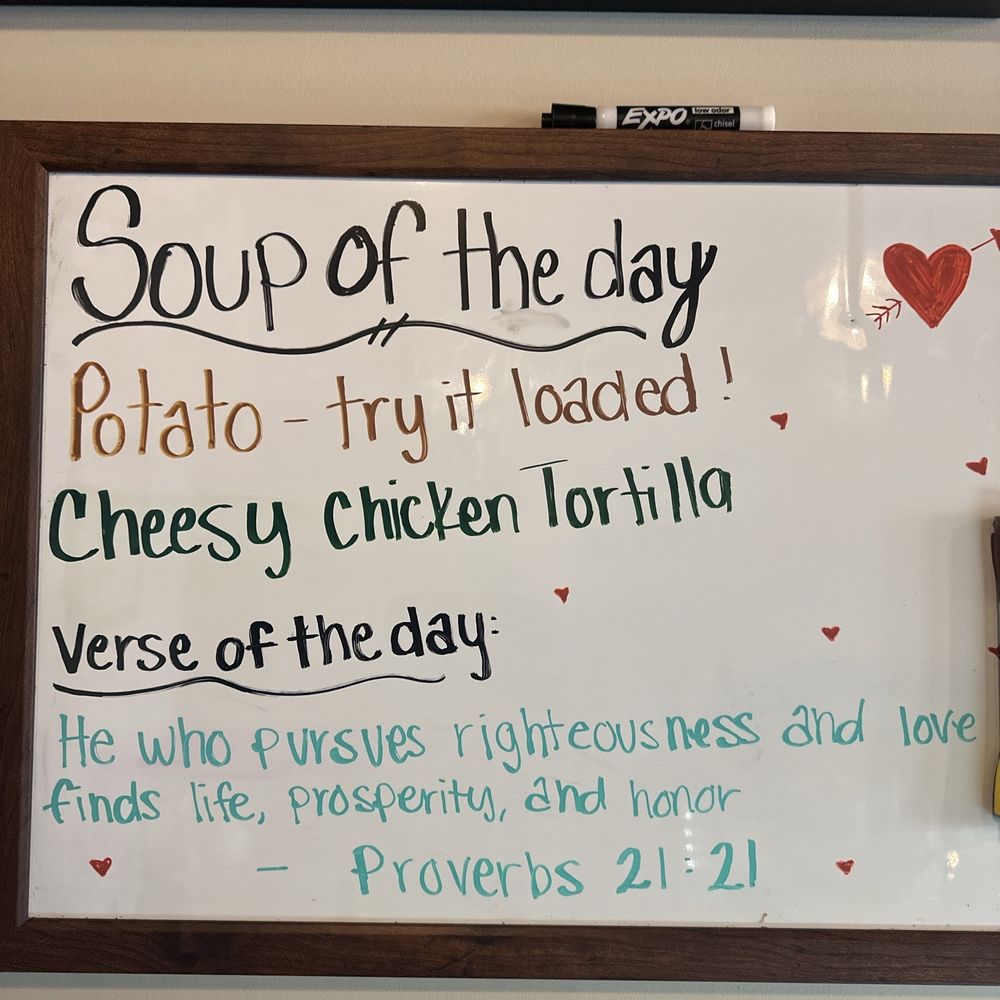 EXPO low odor
chisel
Soup of the day
Potato - try it loaded!
Cheesy Chicken Tortilla
Verse of the day:
He who pursues righteousness and love
finds life, prosperity, and honor
- Proverbs 21:21